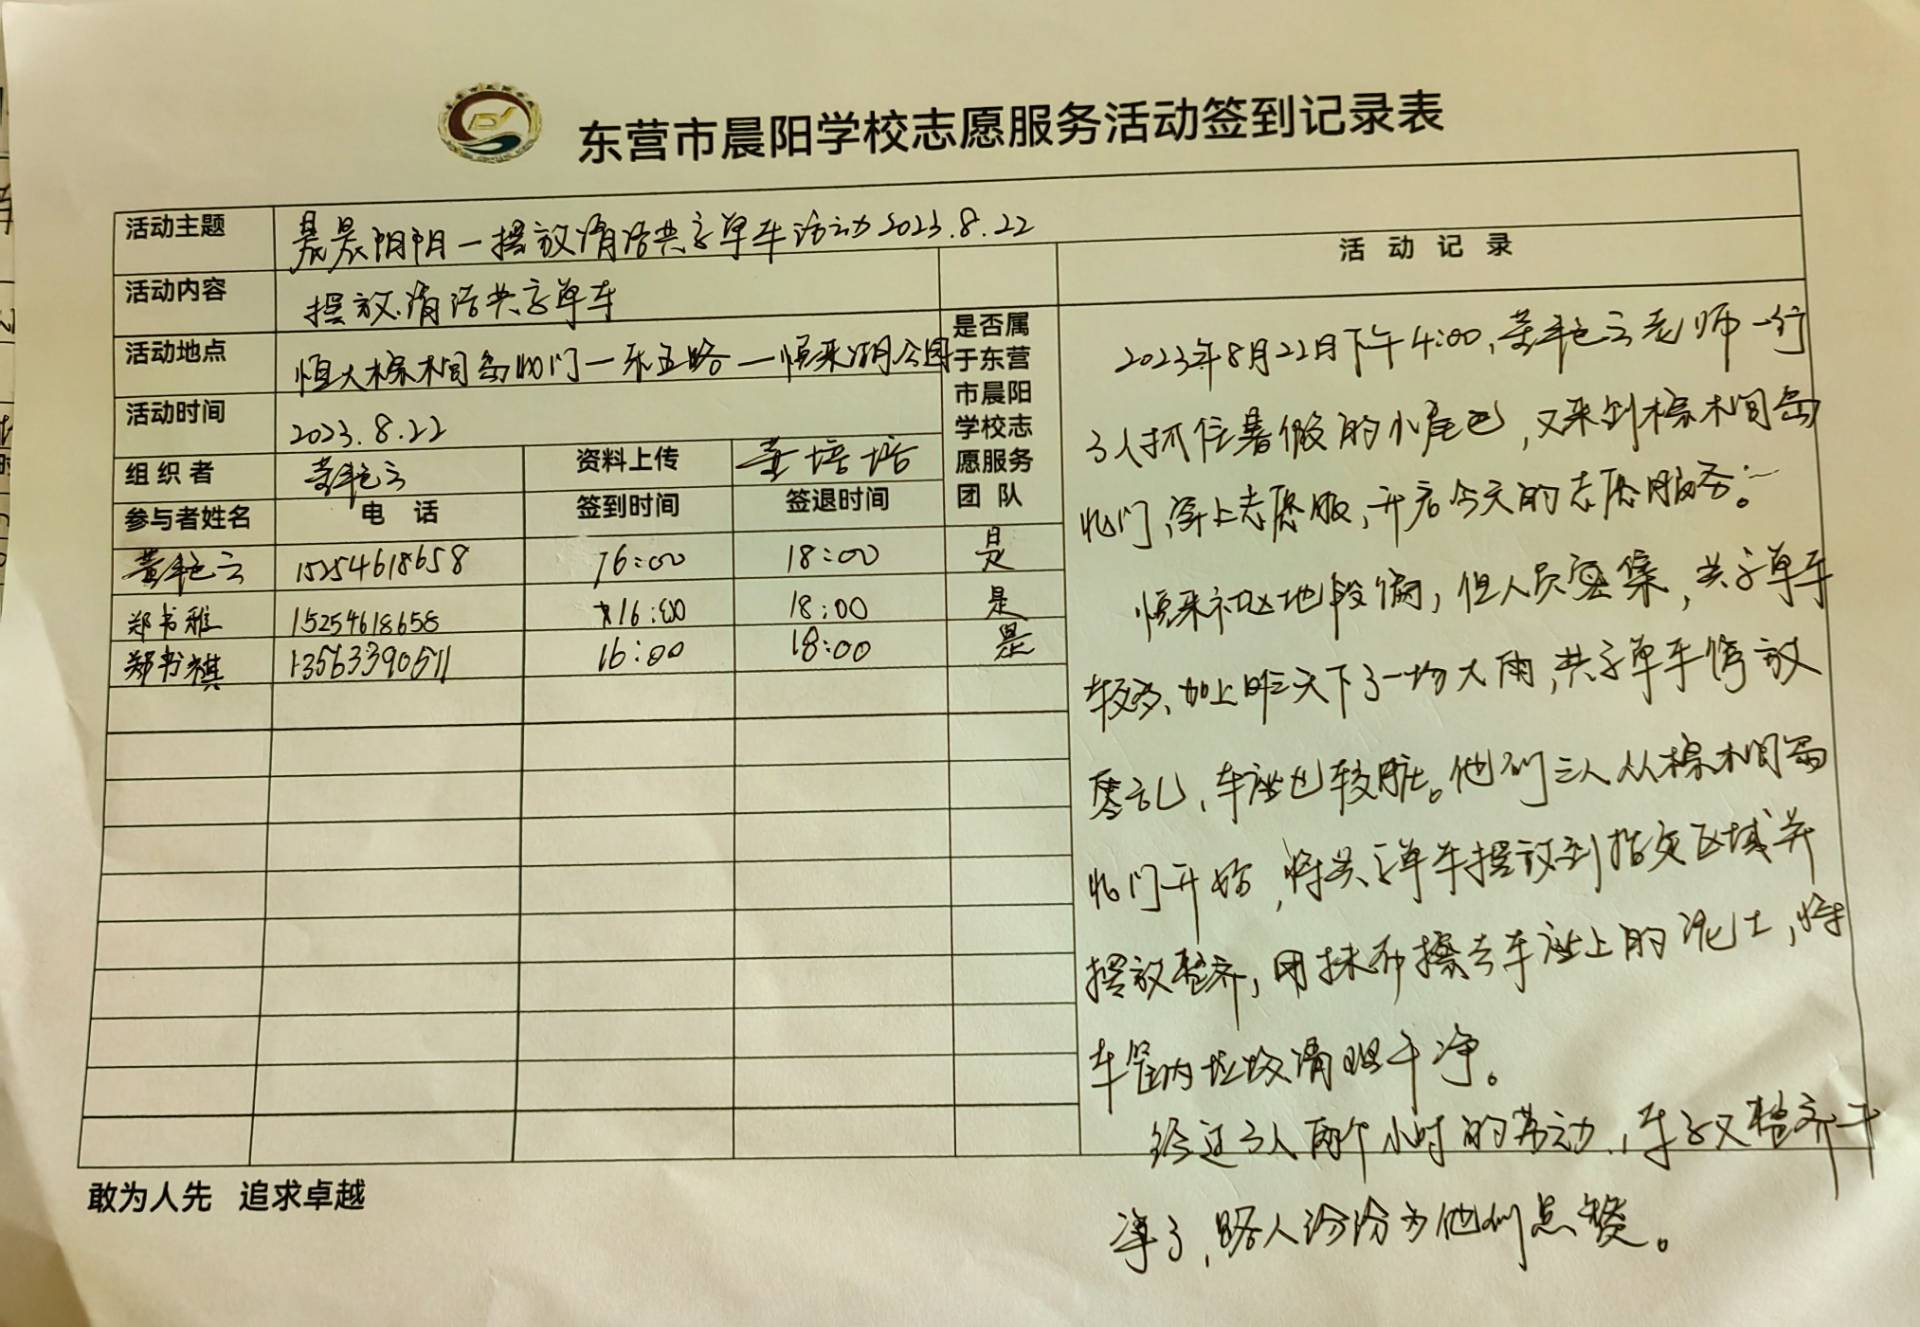 东营市晨阳学校志愿服务活动签到记录表
活动主题 晨晨阳阳一摆放清洁共享单车活动2023.8.22
活动内容 摆放清洁共享单车
活动地点 恒大棕榈岛北门一东五路一恒来湖公园
活动时间 2023.8.22
组织者 黄艳云 资料上传 黄培培
参与者姓名 电话 签到时间 签退时间
是否属
于东营
市晨阳
学校志
愿服务
团队
黄艳云 15254618658 16:00 18:00 是
郑书雅 15254618658 16:00 18:00 是
郑书祺 13563390511 16:00 18:00 是
活动记录
2023年8月22日下午4:00,黄艳云老师一行
3人抓住暑假的小尾巴,又来到棕榈岛
北门,穿上志愿服,开启今天的志愿服务。
恒来社区地段偏,但人员密集,共享单车
较多,加上昨天下了一场大雨,共享单车停放
凌乱,车座也较脏。他们三人从棕榈岛
北门开始,将共享单车摆放到指定区域并
摆放整齐,用抹布擦去车座上的泥土,将
车筐内垃圾清理干净。
经过3人两个小时的劳动,车子又整齐干
净了,路人纷纷为他们点赞。
敢为人先 追求卓越